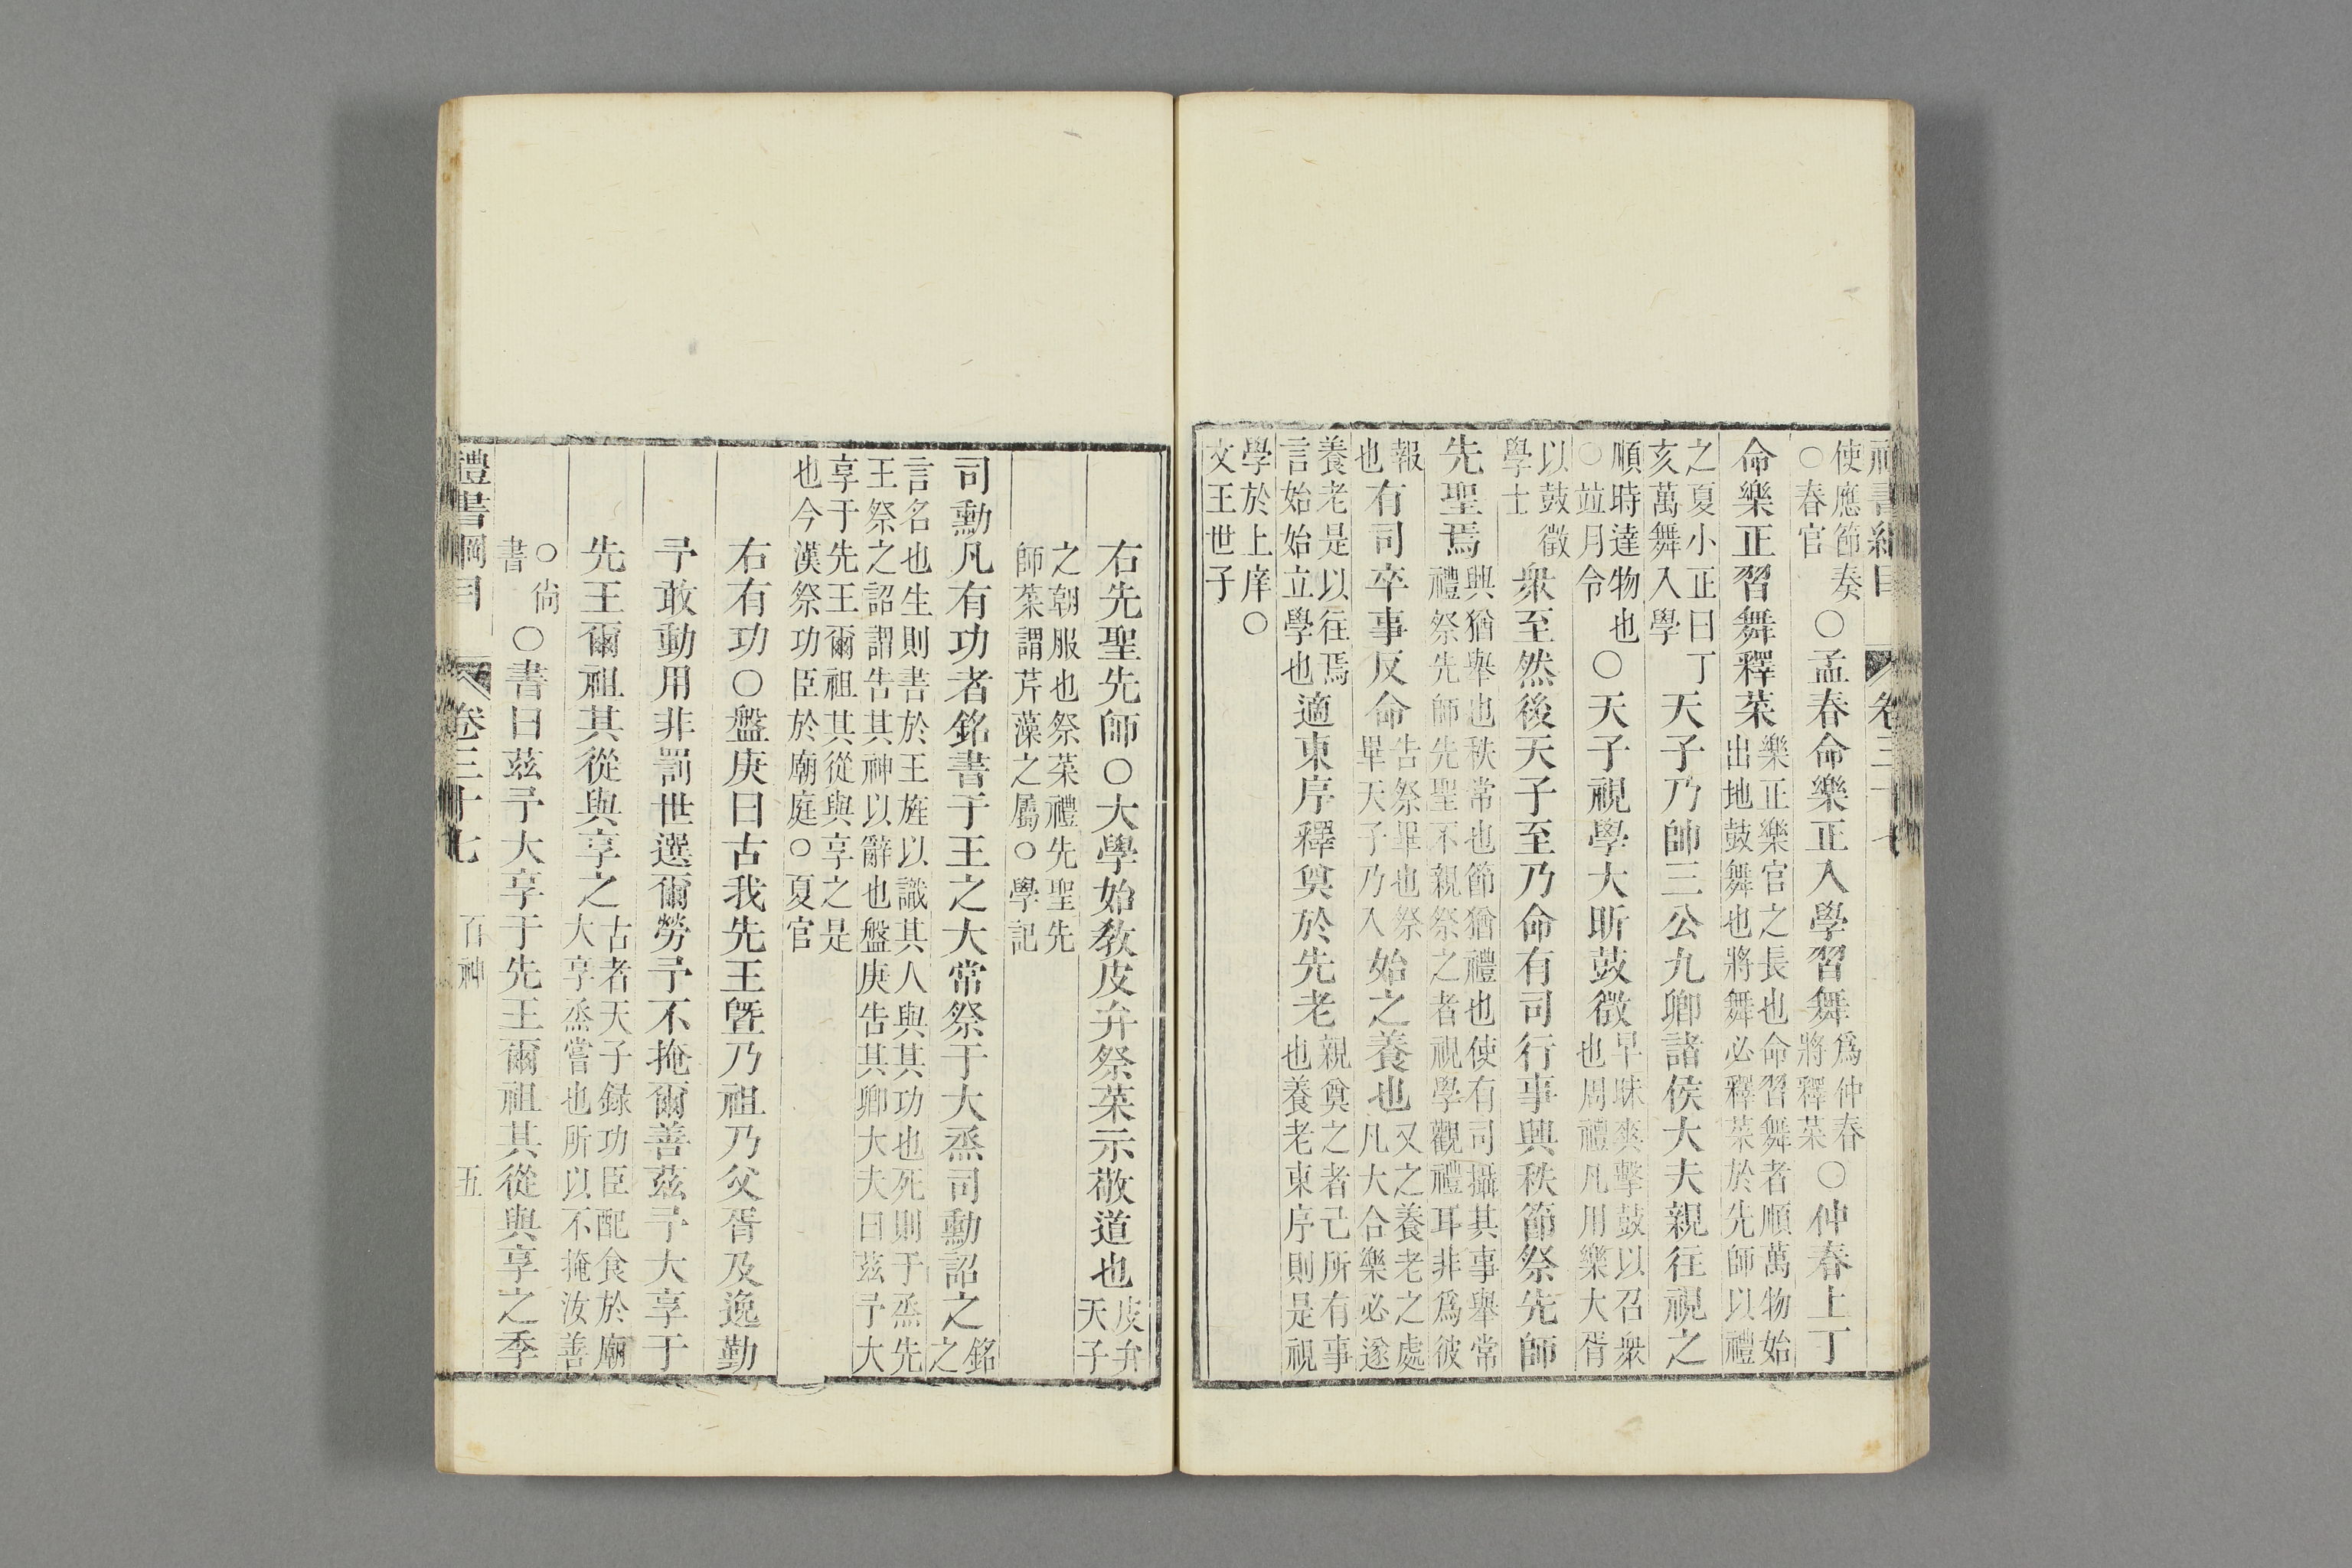 禮書綱目 卷三十七
使應節奏○春官○孟春命樂正入學習舞爲仲春將釋菜○仲春上丁
命樂正習舞釋菜樂正樂官之長也命習舞者順萬物始出地鼓舞也將舞必釋菜於先師以禮
之夏小正曰丁亥萬舞入學天子乃帥三公九卿諸侯大夫親往視之
順時達物也○竝月令○天子視學大昕鼓徵早昧爽擊鼓以召衆也周禮凡用樂大胥
以鼓徵學士衆至然後天子至乃命有司行事興秩節祭先師
先聖焉興猶舉也秩常也節猶禮也使有司攝其事舉常禮祭先師先聖不親祭之者視學觀禮耳非爲彼
報也有司卒事反命告祭畢也祭畢天子乃入始之養也又之養老之處凡大合樂必遂
養老是以往焉言始始立學也適東序釋奠於先老親奠之者己所有事也養老東序則是視
學於上庠○文王世子
右先聖先師○大學始教皮弁祭菜示敬道也皮弁天子
之朝服也祭菜禮先聖先師菜謂芹藻之屬○學記
司勳凡有功者銘書于王之大常祭于大烝司勳詔之銘之
言名也生則書於王旌以識其人與其功也死則于烝先王祭之詔謂告其神以辭也盤庚告其卿大夫曰茲予大
享于先王爾祖其從與享之是也今漢祭功臣於廟庭○夏官
右有功○盤庚曰古我先王曁乃祖乃父胥及逸勤
予敢動用非罰世選爾勞予不掩爾善茲予大享于
先王爾祖其從與享之古者天子録功臣配食於廟大享烝嘗也所以不掩汝善
○尚書○書曰茲予大享于先王爾祖其從與享之季
禮書綱目 卷三十七 百神 五